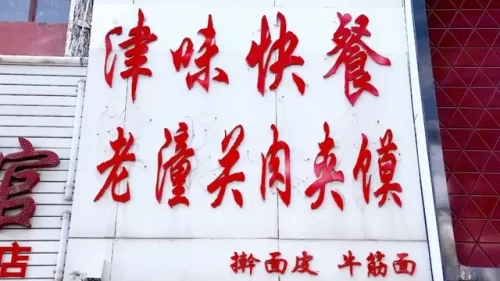 津味快餐
老潼关肉夹馍
擀面皮 牛筋面
馆
店